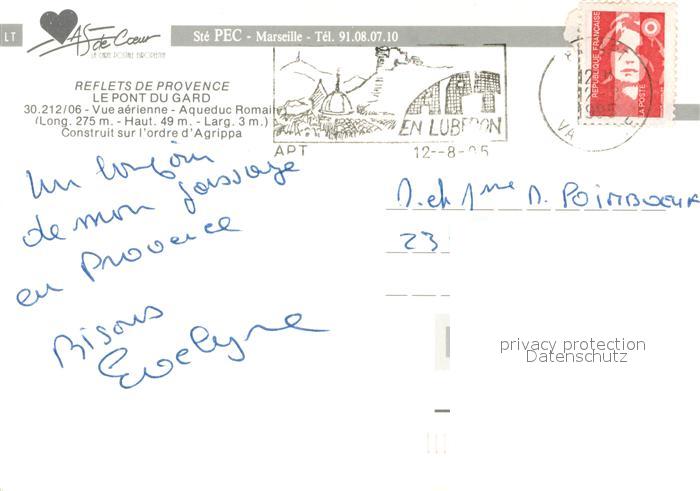 LT
AS de Cœur
LA CARTE POSTALE EUROPEENNE
Sté PEC - Marseille - Tél. 91.08.07.10
REFLETS DE PROVENCE
LE PONT DU GARD
30.212/06 - Vue aérienne - Aqueduc Romain
(Long. 275 m. - Haut. 49 m. - Larg. 3 m.)
Construit sur l'ordre d'Agrippa
APT
EN LUBERON
APT
12--8-95
REPUBLIQUE FRANÇAISE
LA POSTE
Un bonjour
de mon passage
en Provence
Bisous
Evelyne
M. et Mme D. POIMBOEUF
23
privacy protection
Datenschutz